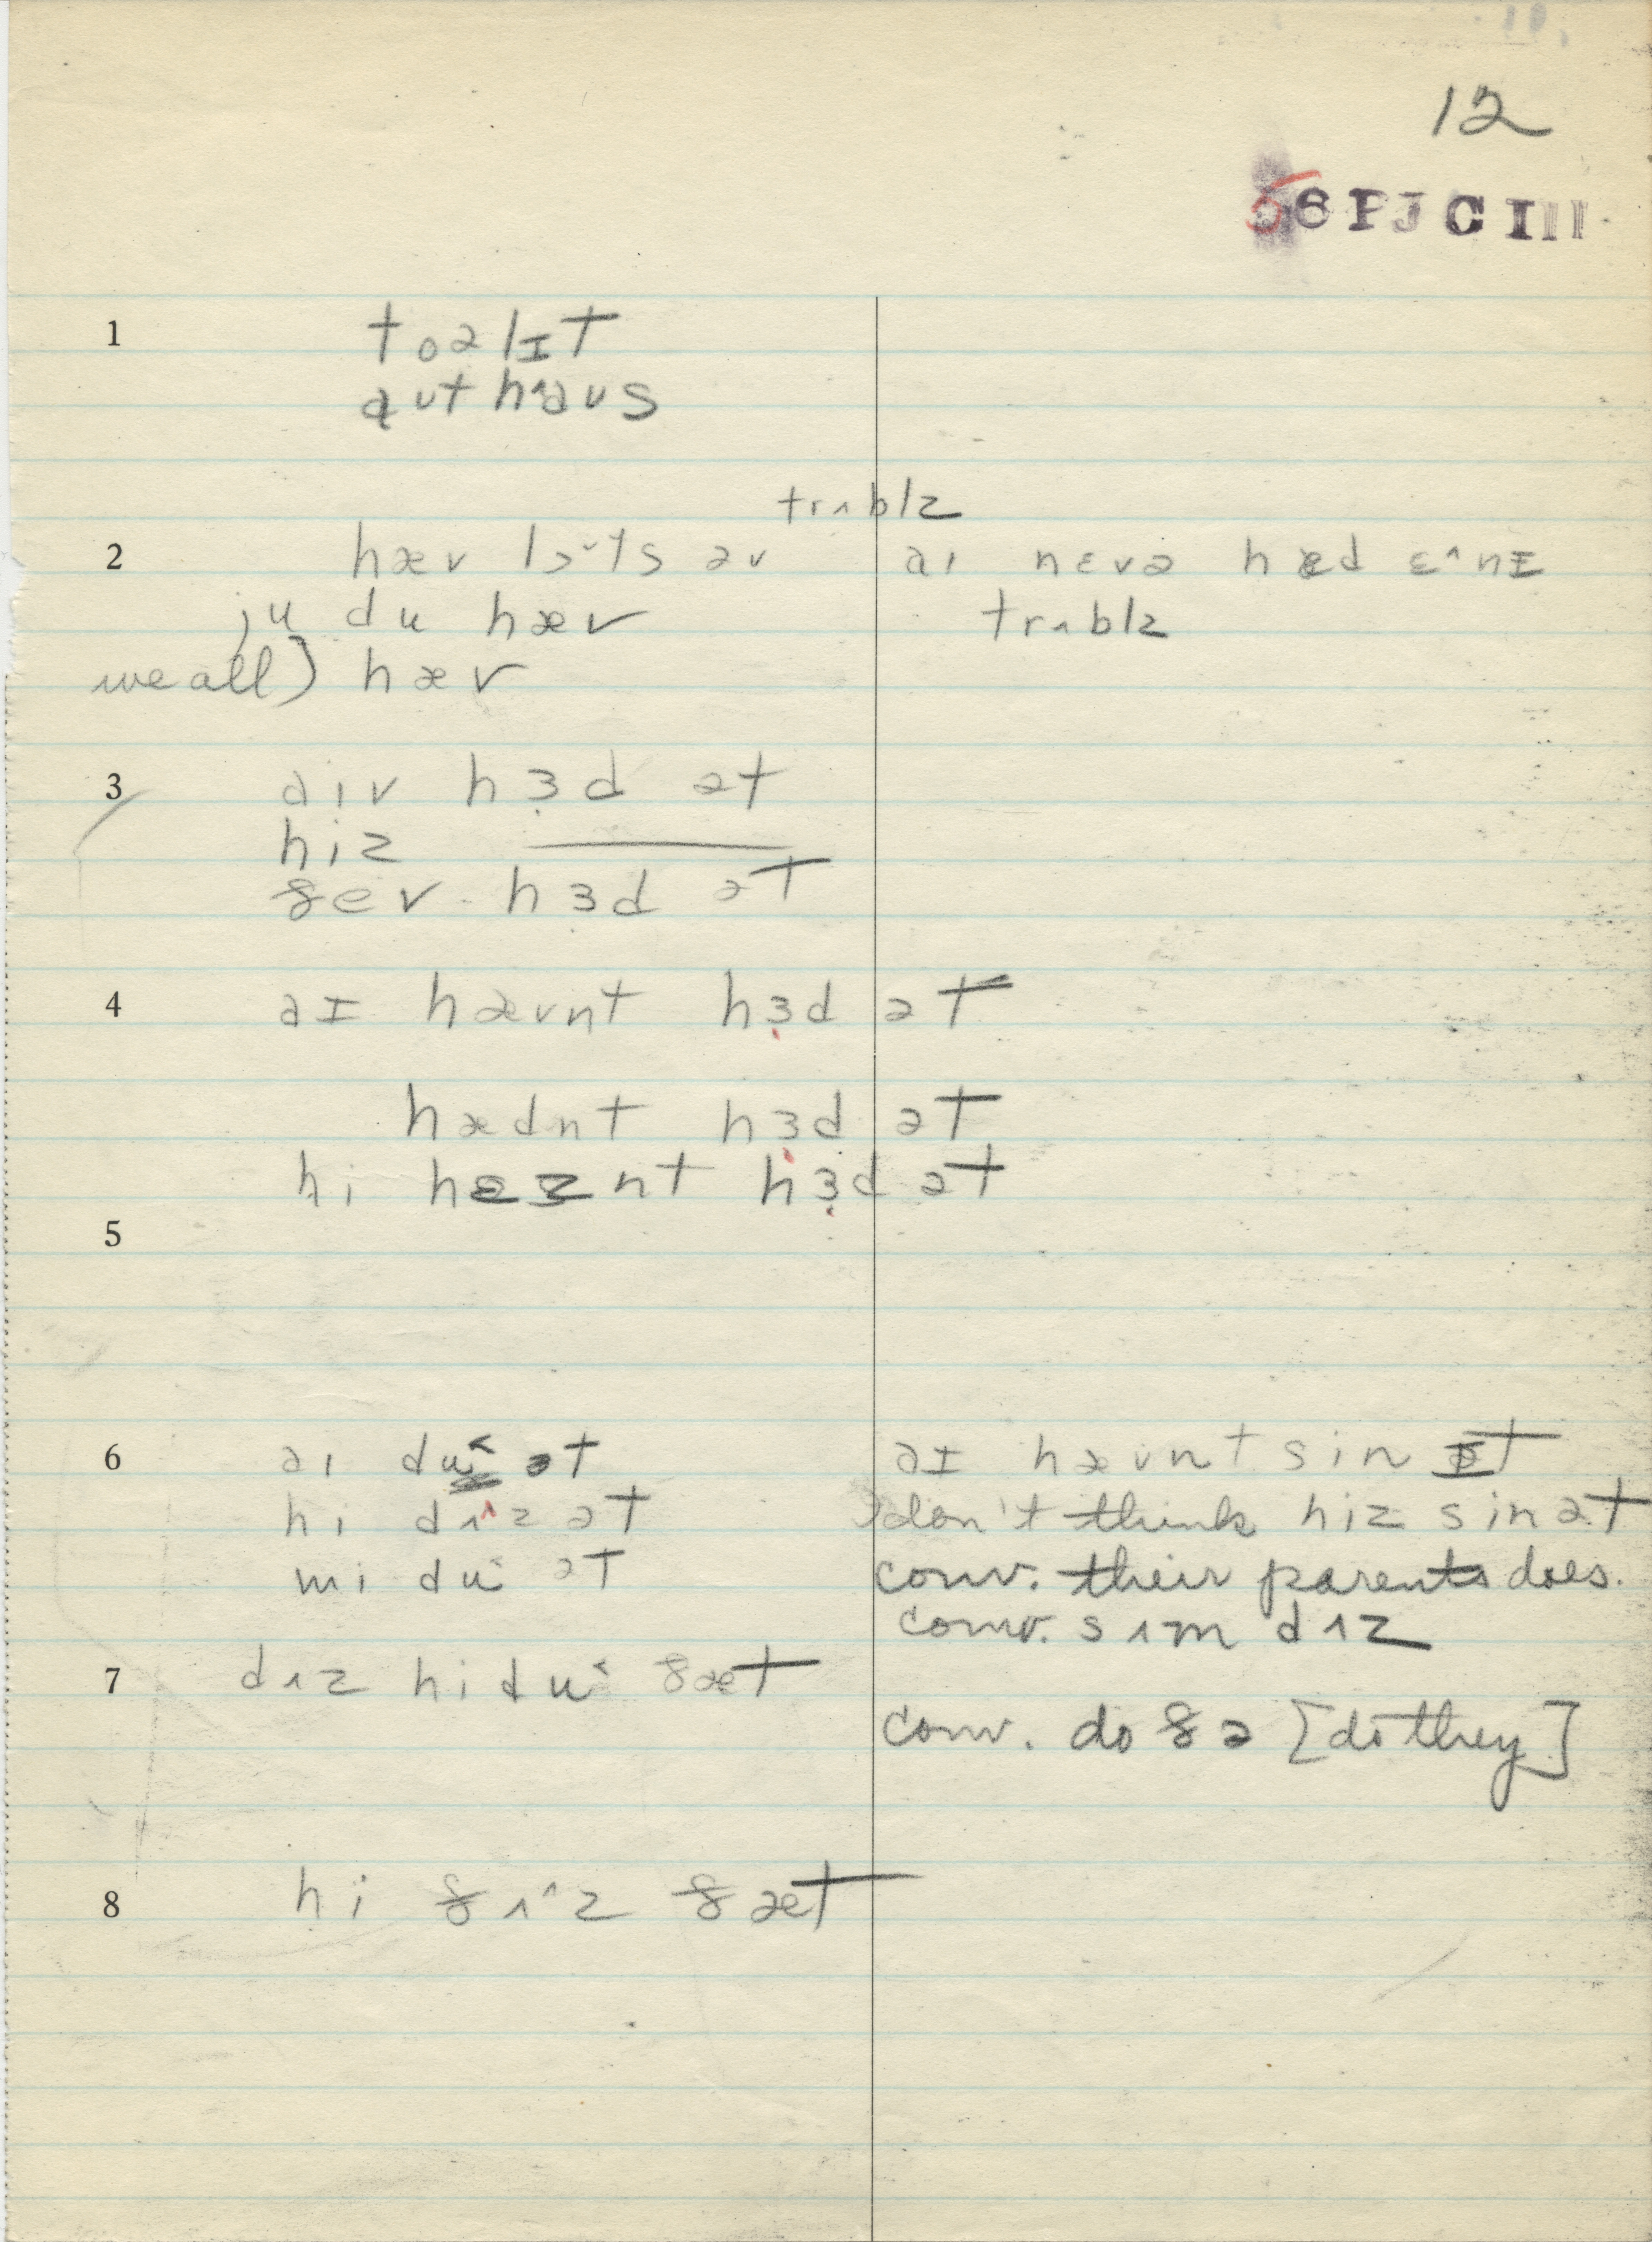 12
56PJCIII
1 toəlɪt
aʊt hʌ̂aʊs
trʌblz
2 hæv lɔˇts əv aɪ nɛvə hæd ɛ^nɪ
ju du hæv trʌblz
we all) hæv
3 aɪv hɜd ət
hiz ———
ðev hɜd ət
4 aɪ hævnt hɜd ət
hædnt hɜd ət
hi hæznt hɜd ət
5
6 aɪ du˂ ət aɪ hævnt sin ɪt
hi dʌ^z ət don't think hiz sin ət
mi du˂ ət conv. their parents does.
conv. sʌm dʌz
7 dʌz hi du˂ ðæt
conv. do ðə [do they]
8 hi ðʌ^z ðæt